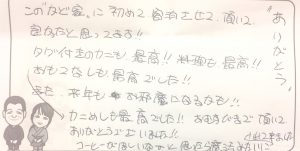 "ありがとう"
この"なだ家"に初めて宿泊させて頂いて
良かったと思ってます!!
タグ付きのカニも最高!! 料理も最高!!
おもてなしも最高でした!!
また、来年もお邪魔になるかも!!
カニめしも最高でした!! おむすびまで頂いて
ありがとうございました!!
コーヒーがほしいなあと思ったら